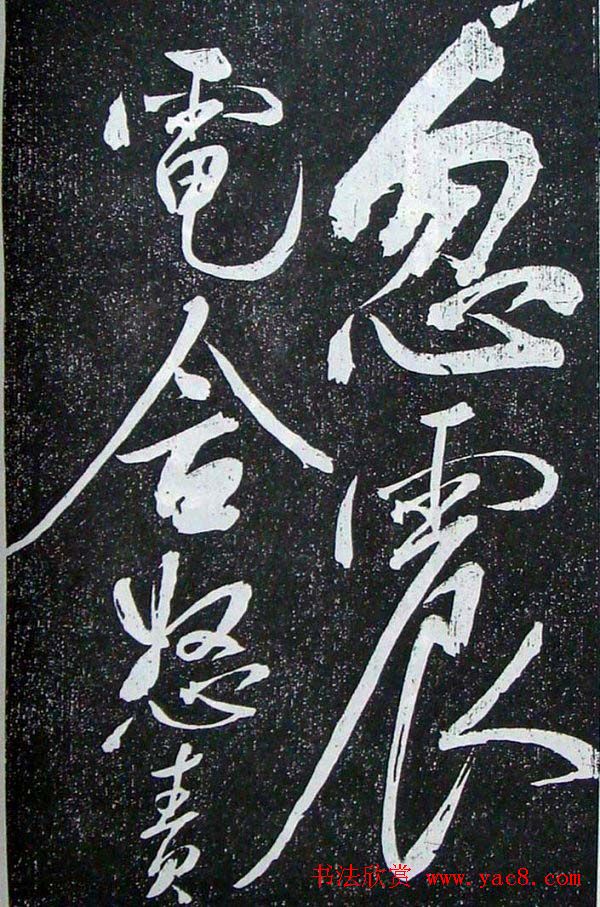 忽震
電合怒責
书法欣赏 www.yac8.com